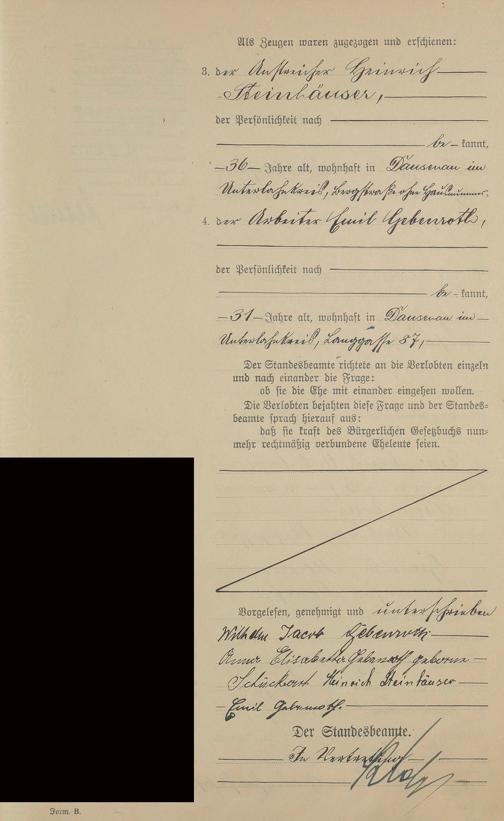 Als Zeugen waren zugezogen und erschienen:
3. der Anstreicher Heinrich
Steinhäuser,
der Persönlichkeit nach
be-kannt,
36 Jahre alt, wohnhaft in Dausenau im
Unterlahnkreis, Bergstraße ohne Hausnummer.
4. der Arbeiter Emil Gebenroth,
der Persönlichkeit nach
be-kannt,
31 Jahre alt, wohnhaft in Dausenau im
Unterlahnkreis, Langgasse 57,
Der Standesbeamte richtete an die Verlobten einzeln
und nach einander die Frage:
ob sie die Ehe mit einander eingehen wollen.
Die Verlobten bejahten diese Frage und der Standes-
beamte sprach hierauf aus:
daß sie kraft des Bürgerlichen Gesetzbuchs nun-
mehr rechtmäßig verbundene Eheleute seien.
Vorgelesen, genehmigt und unterschrieben
Wilhelm Jacob Gebenroth
Anna Elisabetha Gebenroth geborne
Schückart Heinrich Steinhäuser
Emil Gebenroth.
Der Standesbeamte.
In Vertretung
Form. B.